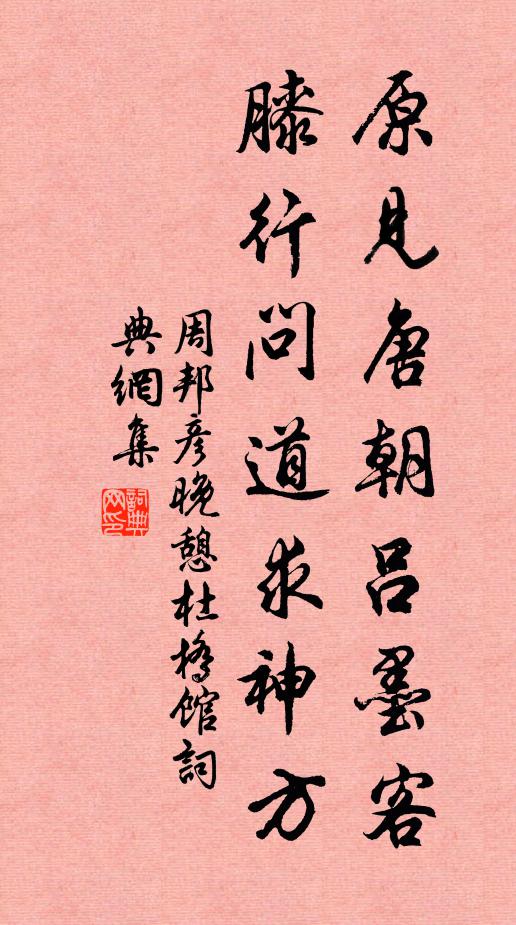 原見唐朝吕墨客
膝行問道求神方
周邦彦晚憩杜橋館詞
典網集
詞典網印